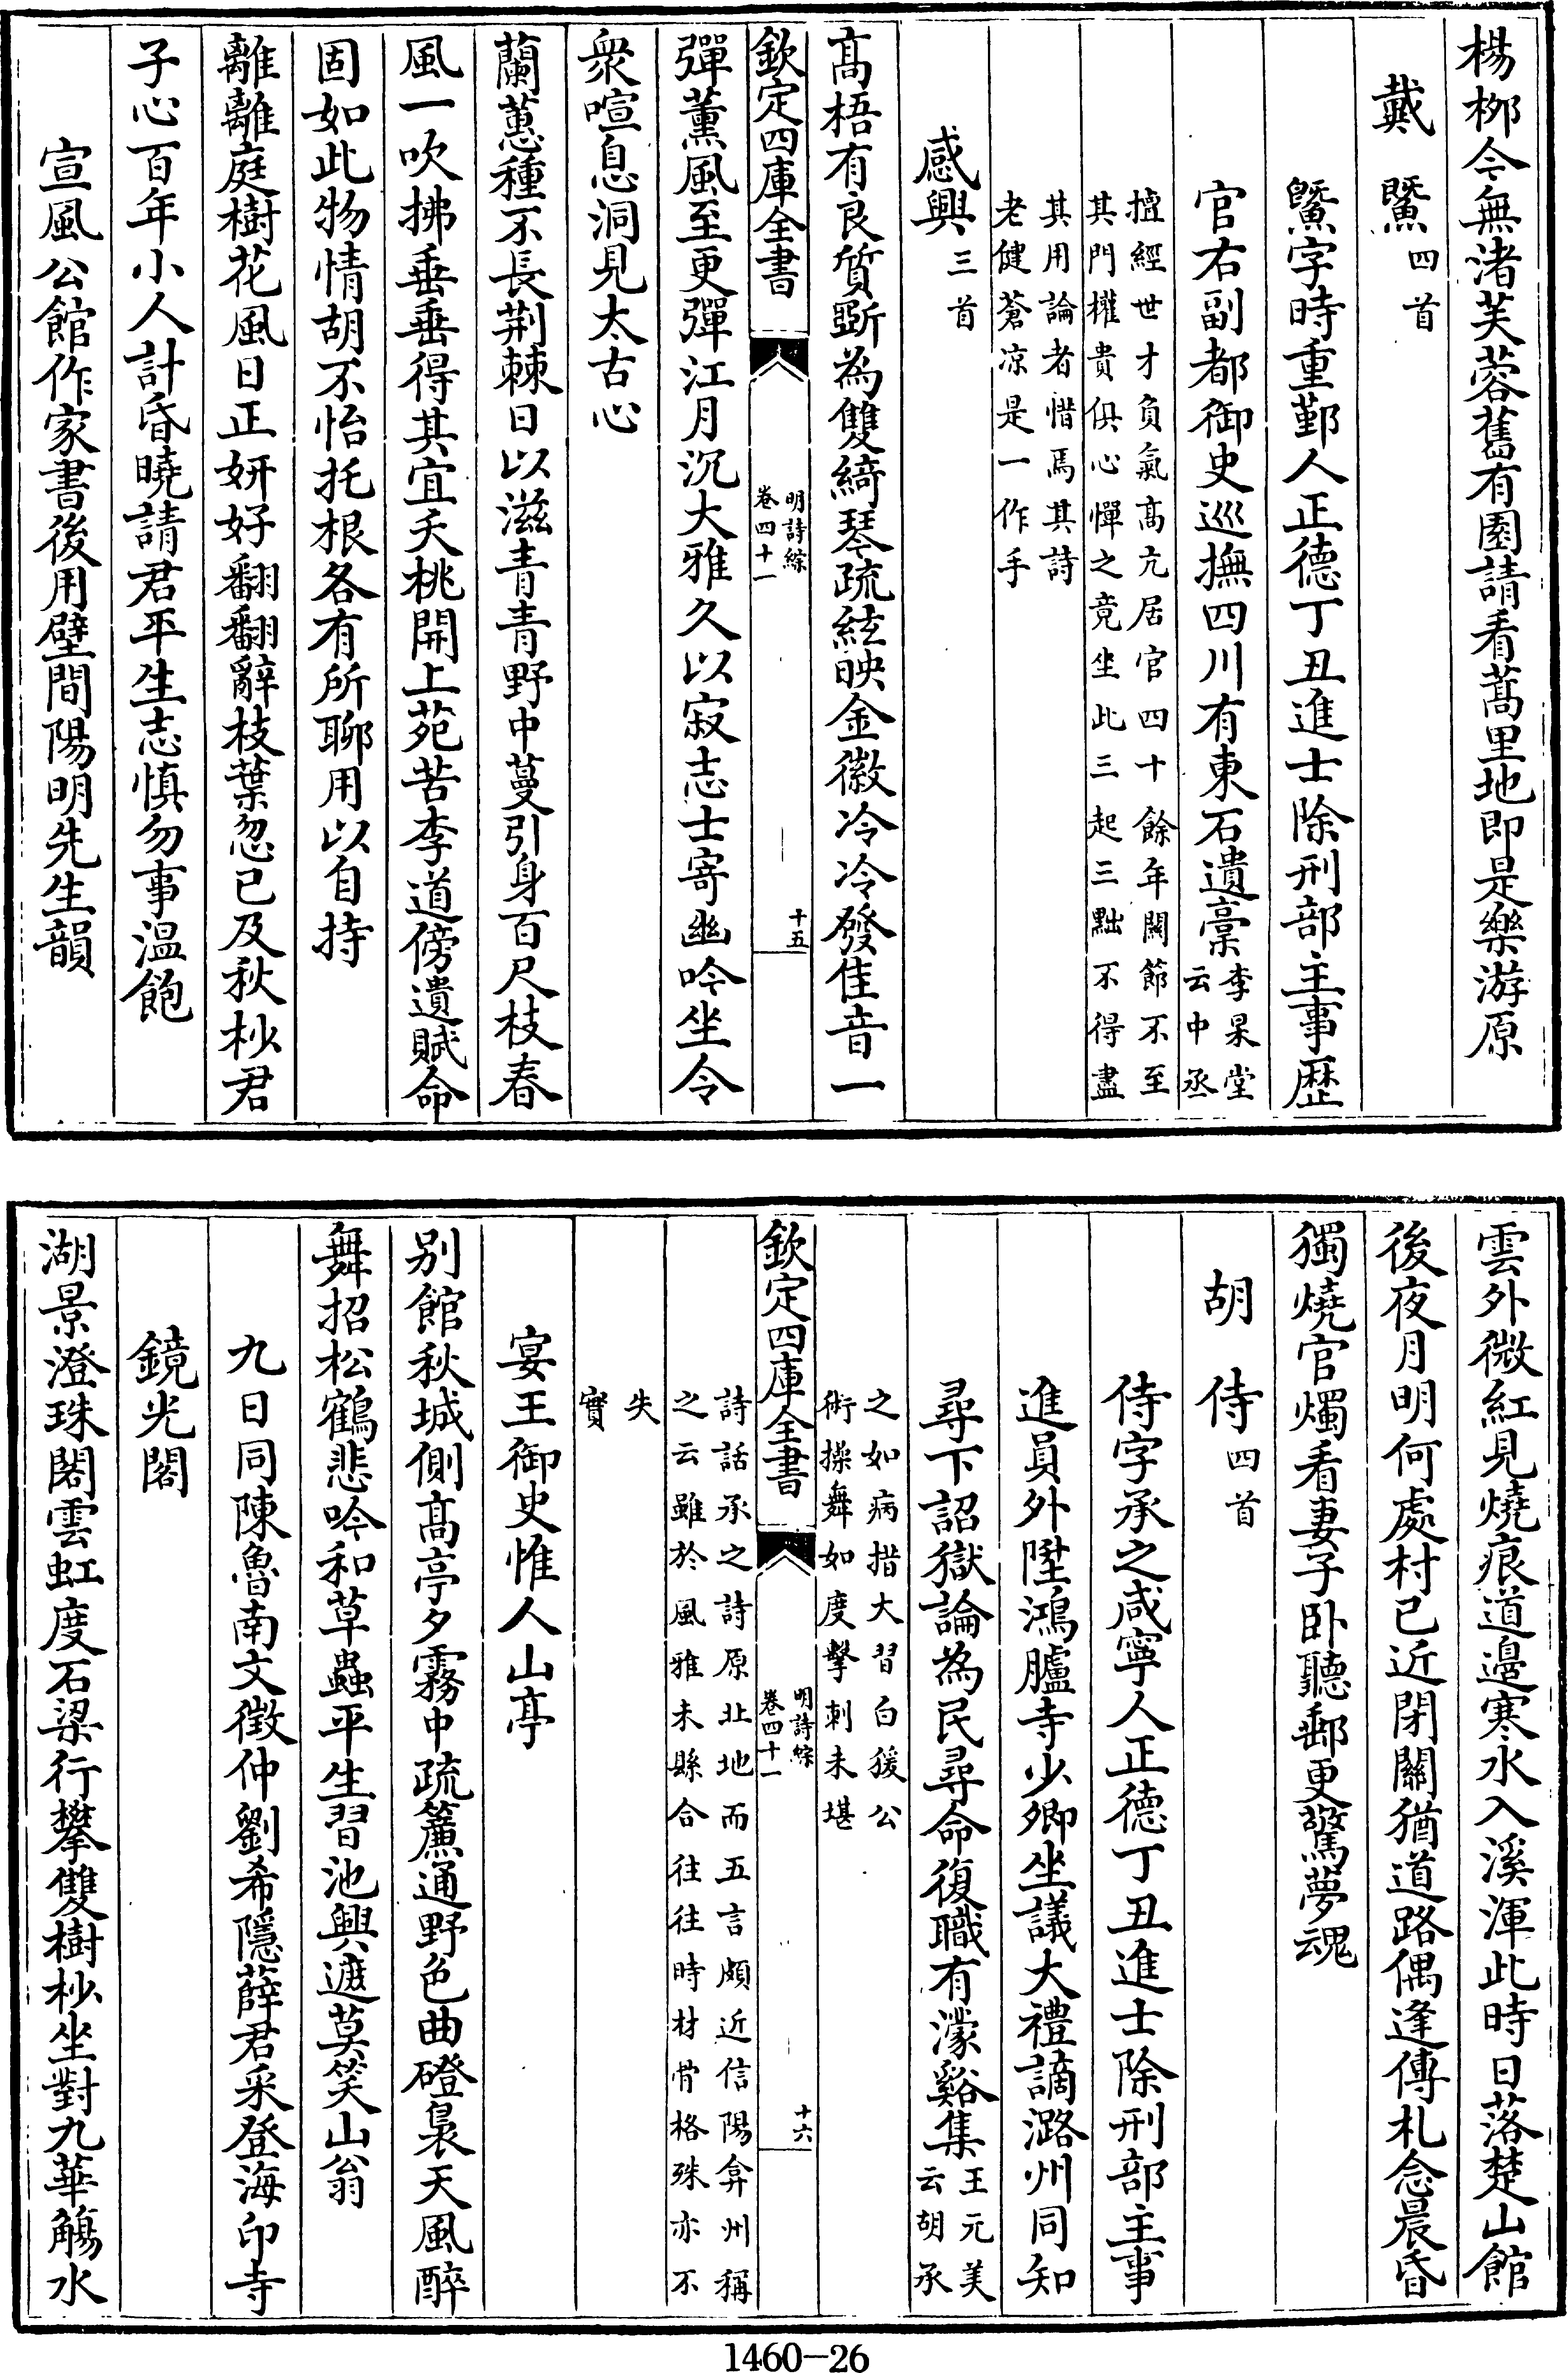 楊栁今無渚芙蓉舊有園請看蒿里地即是樂游原
戴鱀四首
鱀字時重鄞人正德丁丑進士除刑部主事歴
官右副都御史巡撫四川有東石遺稾李杲堂云中丞
擅經世才負氣髙亢居官四十餘年闗節不至
其門權貴俱心憚之竟坐此三起三黜不得盡
其用論者惜焉其詩
老健蒼凉是一作手
感興三首
髙梧有良質斵為雙綺琴疏絃映金徽冷冷發佳音一
欽定四庫全書 明詩綜 卷四十一 十五
彈薰風至更彈江月沉大雅久以寂志士寄幽吟坐令
衆喧息洞見太古心
蘭蕙種不長荆棘日以滋青青野中蔓引身百尺枝春
風一吹拂垂垂得其宜夭桃開上苑苦李道傍遺賦命
固如此物情胡不怡托根各有所聊用以自持
離離庭樹花風日正妍好翻翻辭枝葉忽已及秋杪君
子心百年小人計昏曉請君平生志慎勿事温飽
宣風公館作家書後用壁間陽明先生韻
雲外微紅見燒痕道邉寒水入溪渾此時日落楚山館
後夜月明何處村已近閉關猶道路偶逢傳札念晨昏
獨燒官燭看妻子卧聽郵更驚夢魂
胡侍四首
侍字承之咸寧人正德丁丑進士除刑部主事
進員外陞鴻臚寺少卿坐議大禮謫潞州同知
尋下詔獄論為民尋命復職有濛谿集王元美云胡承
之如病措大習白猨公
術操舞如度擊刺未堪
欽定四庫全書 明詩綜 卷四十一 十六
詩話承之詩原北地而五言頗近信陽弇州稱
之云雖於風雅未縣合往往時材骨格殊亦不
失
實
宴王御史惟人山亭
别館秋城側髙亭夕霧中疏簾通野色曲磴裊天風醉
舞招松鶴悲吟和草蟲平生習池興遮莫笑山翁
九日同陳魯南文徴仲劉希隱薛君采登海印寺
鏡光閣
湖景澄珠閣雲虹度石梁行攀雙樹杪坐對九華觴水
1460-26